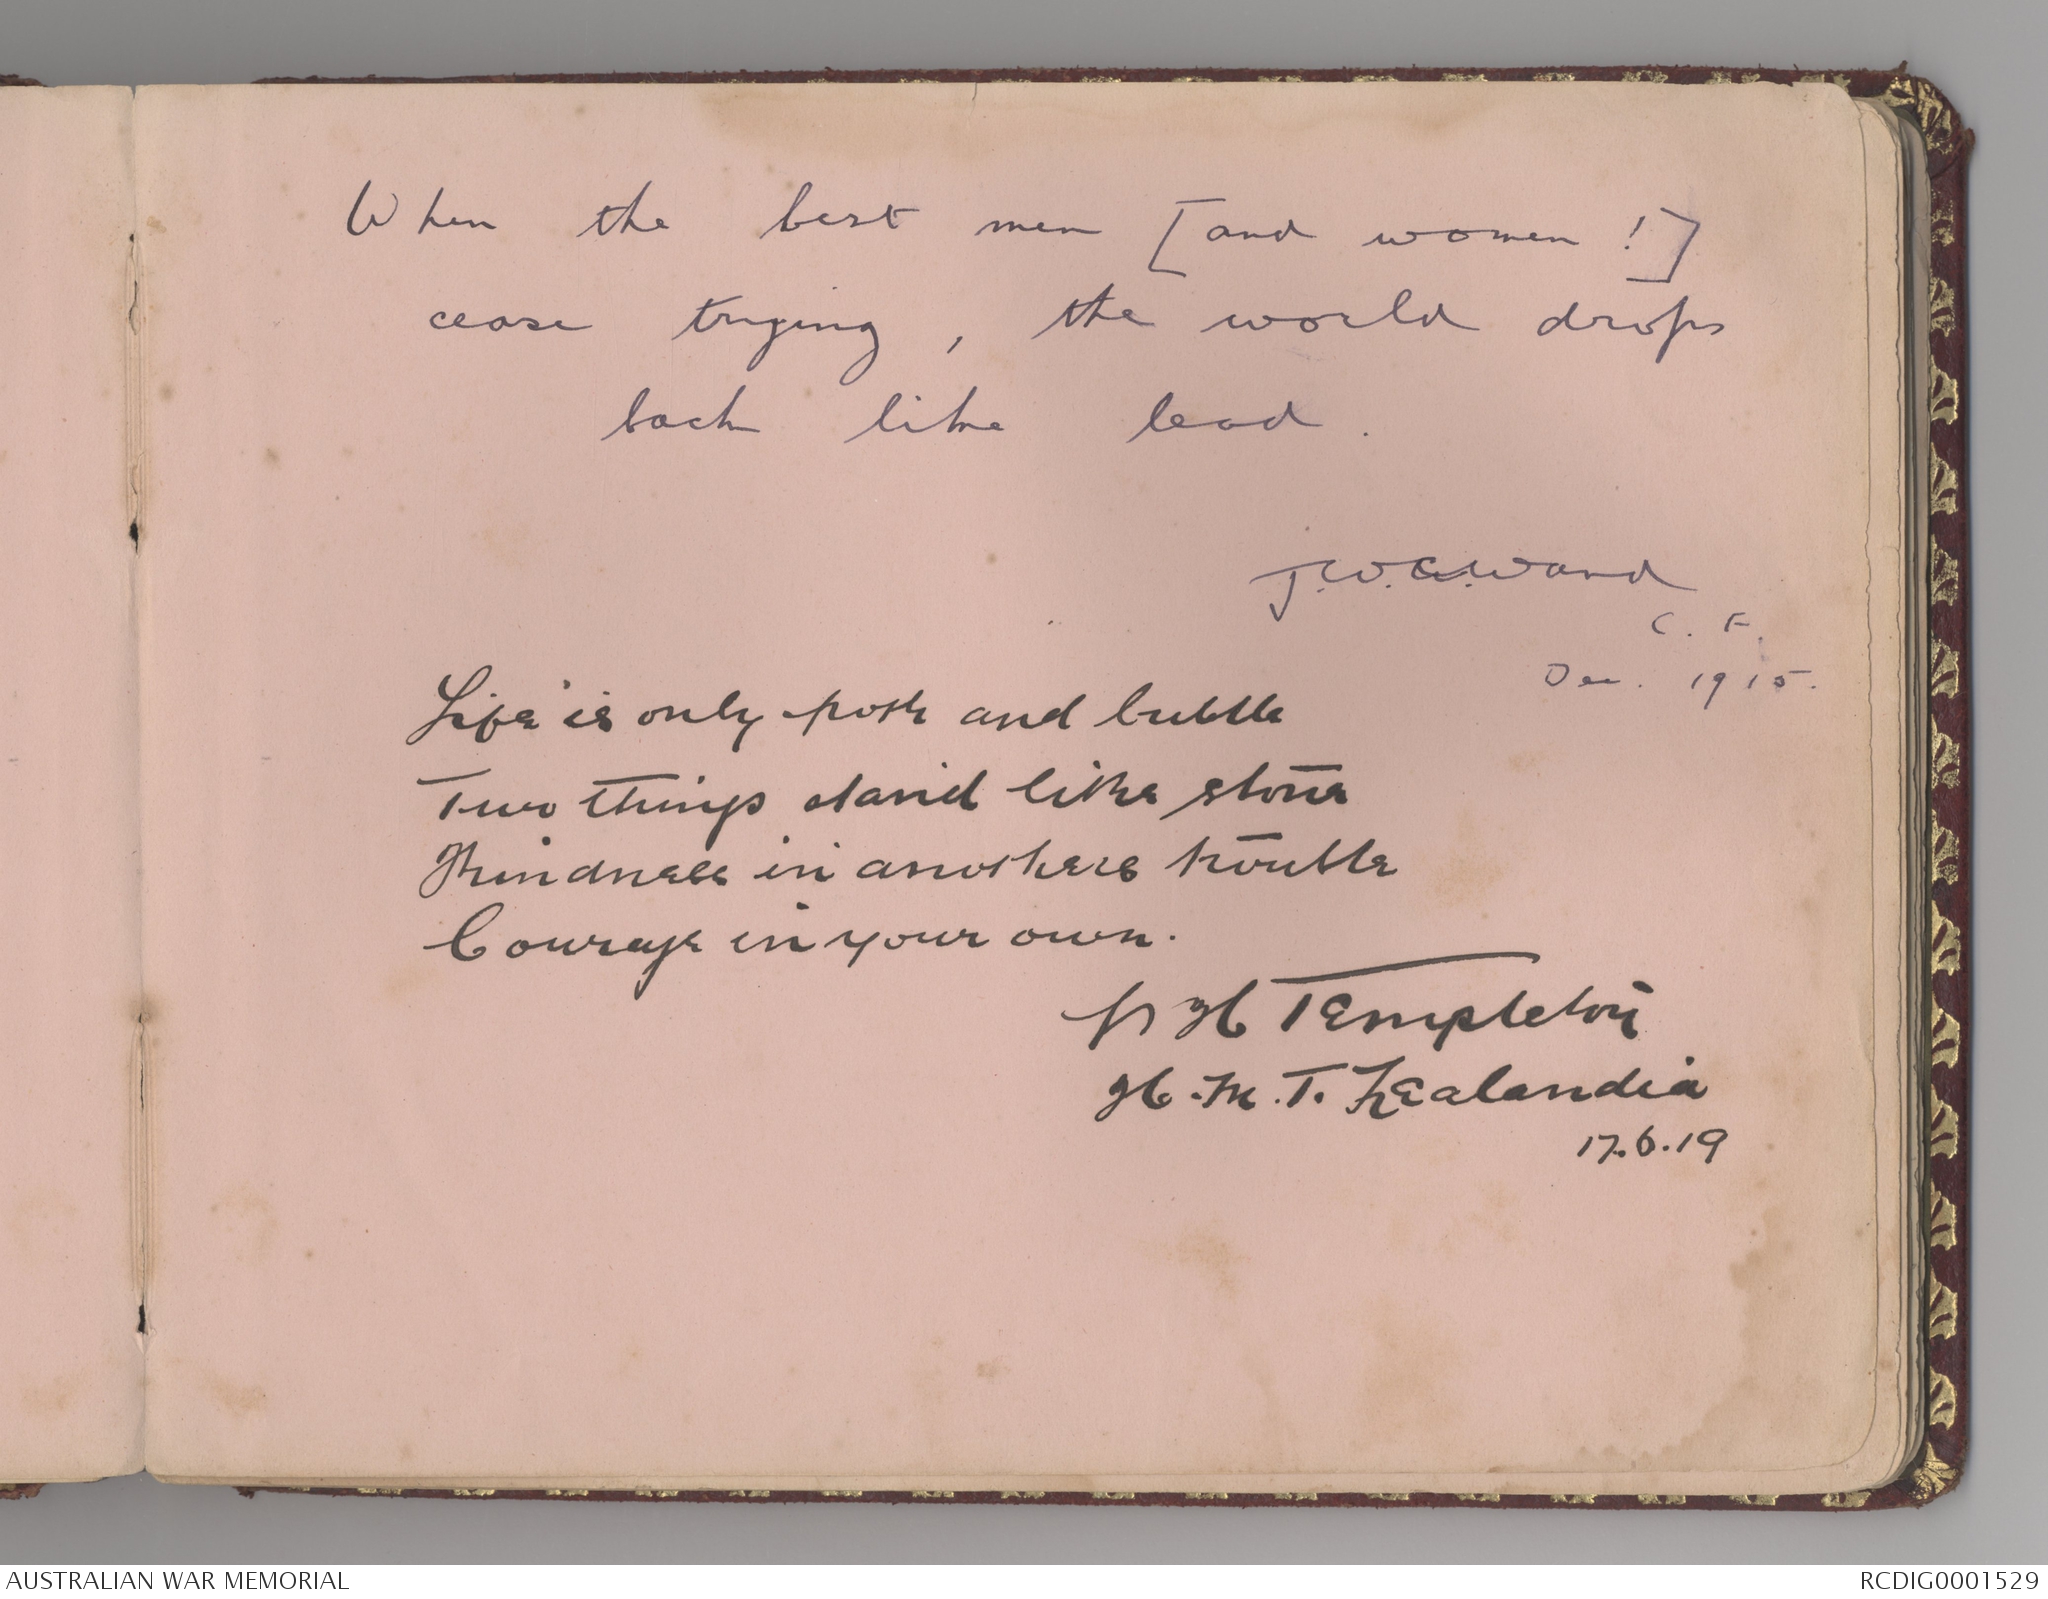 When the best men [and women!]
cease trying, the world drops
back like lead.
J.W.G. Ward
C. F.
Dec. 1915.
Life is only froth and bubble
Two things stand like stone
Kindness in anothers trouble
Courage in your own.
H Templeton
H.M.T. Zealandia
17.6.19
AUSTRALIAN WAR MEMORIAL
RCDIG0001529